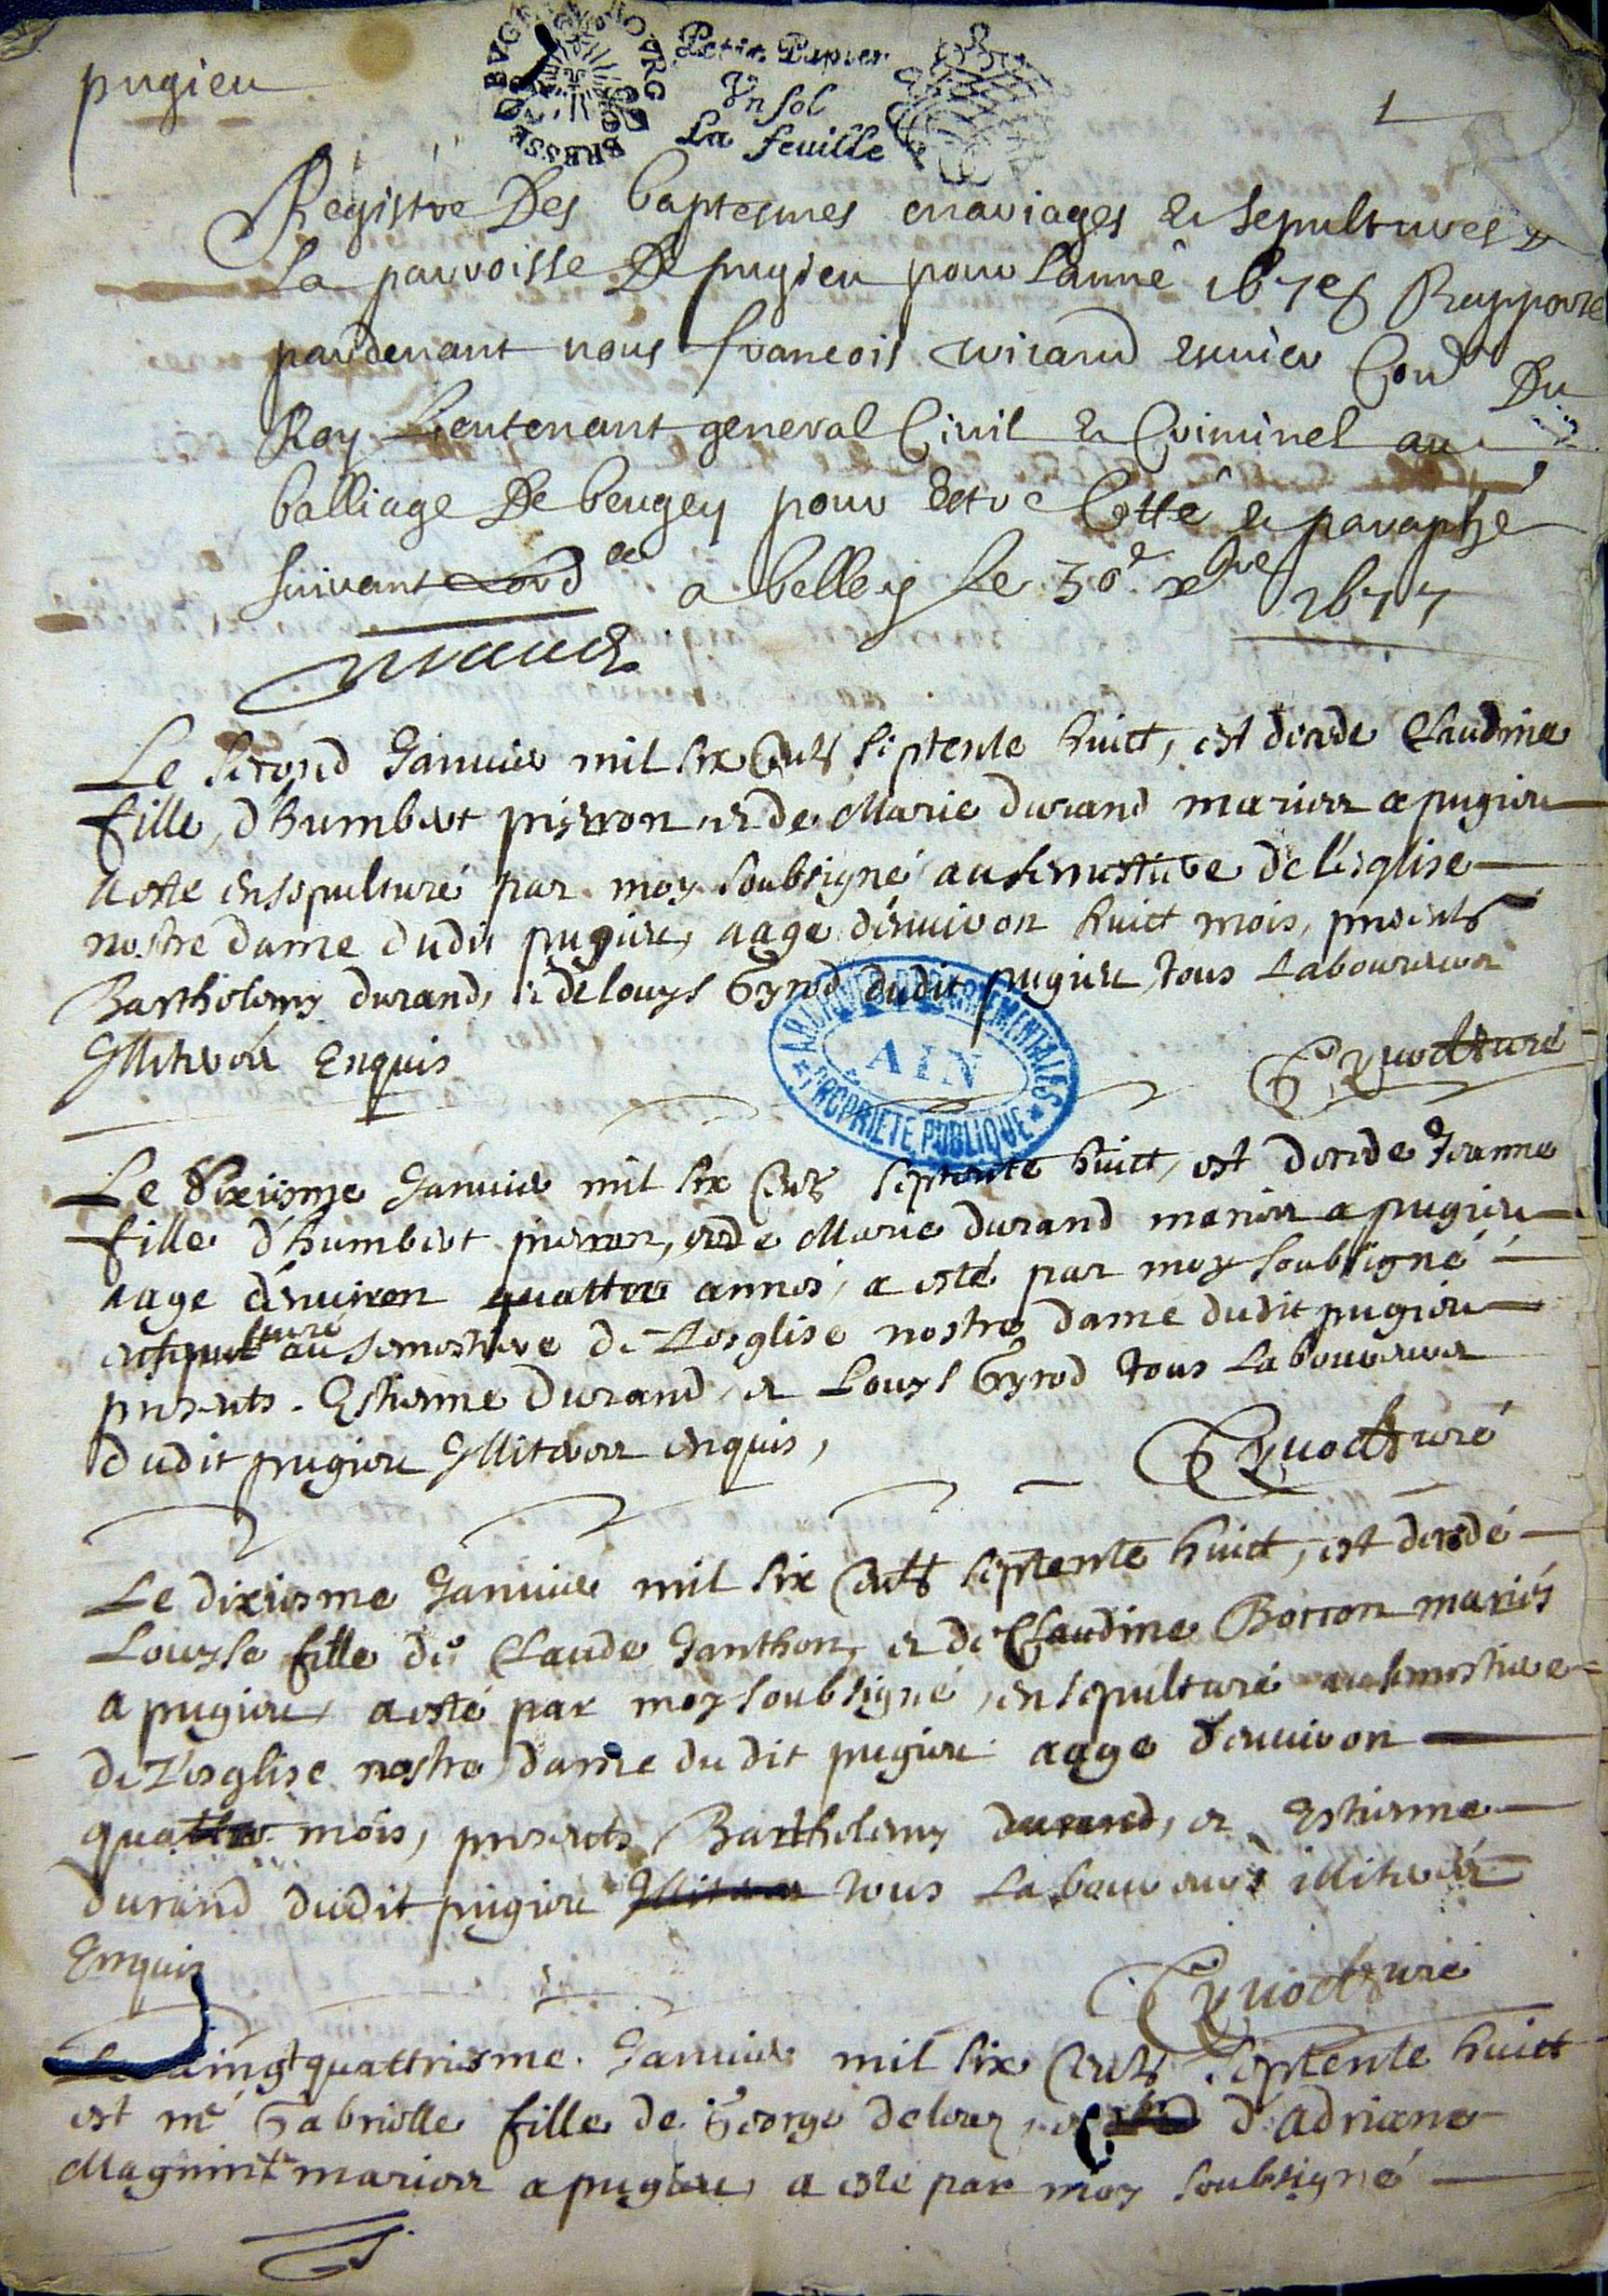 pugieu
BOURG EN BRESSE BUGEY
Petit Papier
Un sol
La feuille
1
Registre Des baptesmes mariages & sepultures D
La parroisse De pugieu pour Lannê 1678 Rapporte
pardevant nous francois escuier Cons^r Du
Roy Lieutenant general Civil & Criminel au
balliage De beugey pour Estre Cotté & paraphé
suivant Lord^ce a belley le 30^e x^bre 1677
Le second Januier mil six Cents septente huict, est decede Claudine
fille, d'humbert pierron, et de Marie durand marier a pugieu
a esté ensepulturé par moy soubsigné au semestiere de l'esglise
nostre dame dudit pugieu, aage d'enuiron huict mois, presents
Bartholemy durand, et de Louys Gyrod dudit pugieu tous Laboureurs
Jlliterez Enquis
curé
ARCHIVES DEPARTEMENTALES
AIN
PROPRIETE PUBLIQUE
Le Sixiesme Januier mil six Cents septente huict, est decede Jeanne
fille d'humbert pierron, et de Marie durand marier a pugieu
aage d'enuiron quattre annes, a esté par moy soubsigné
ensepulturé au semestiere de Lesglise nostre dame dudit pugieu
presents. Estienne durand, et Louys Gyrod tous Laboureurs
dudit pugieu Jlliterez enquis,
curé
Le dixiesme Januier mil six Cents septente huict, est decedé
Louyse fille de Claude Janthon, et de Claudine Botton mariés
a pugieu, a esté par moy soubsigné, ensepulturé au semestiere
de L'esglise nostre dame dudit pugieu aage d'enuiron
quattre mois, presents Bartholemy durand, et Estienne
durand dudit pugieu tous Laboureurs illiterez
Enquis
curé
Le vingt quattriesme. Januier mil six Cents septente huict
est né Gabrielle fille de George et d'Adriane
marier a pugieu, a esté par moy soubsigné